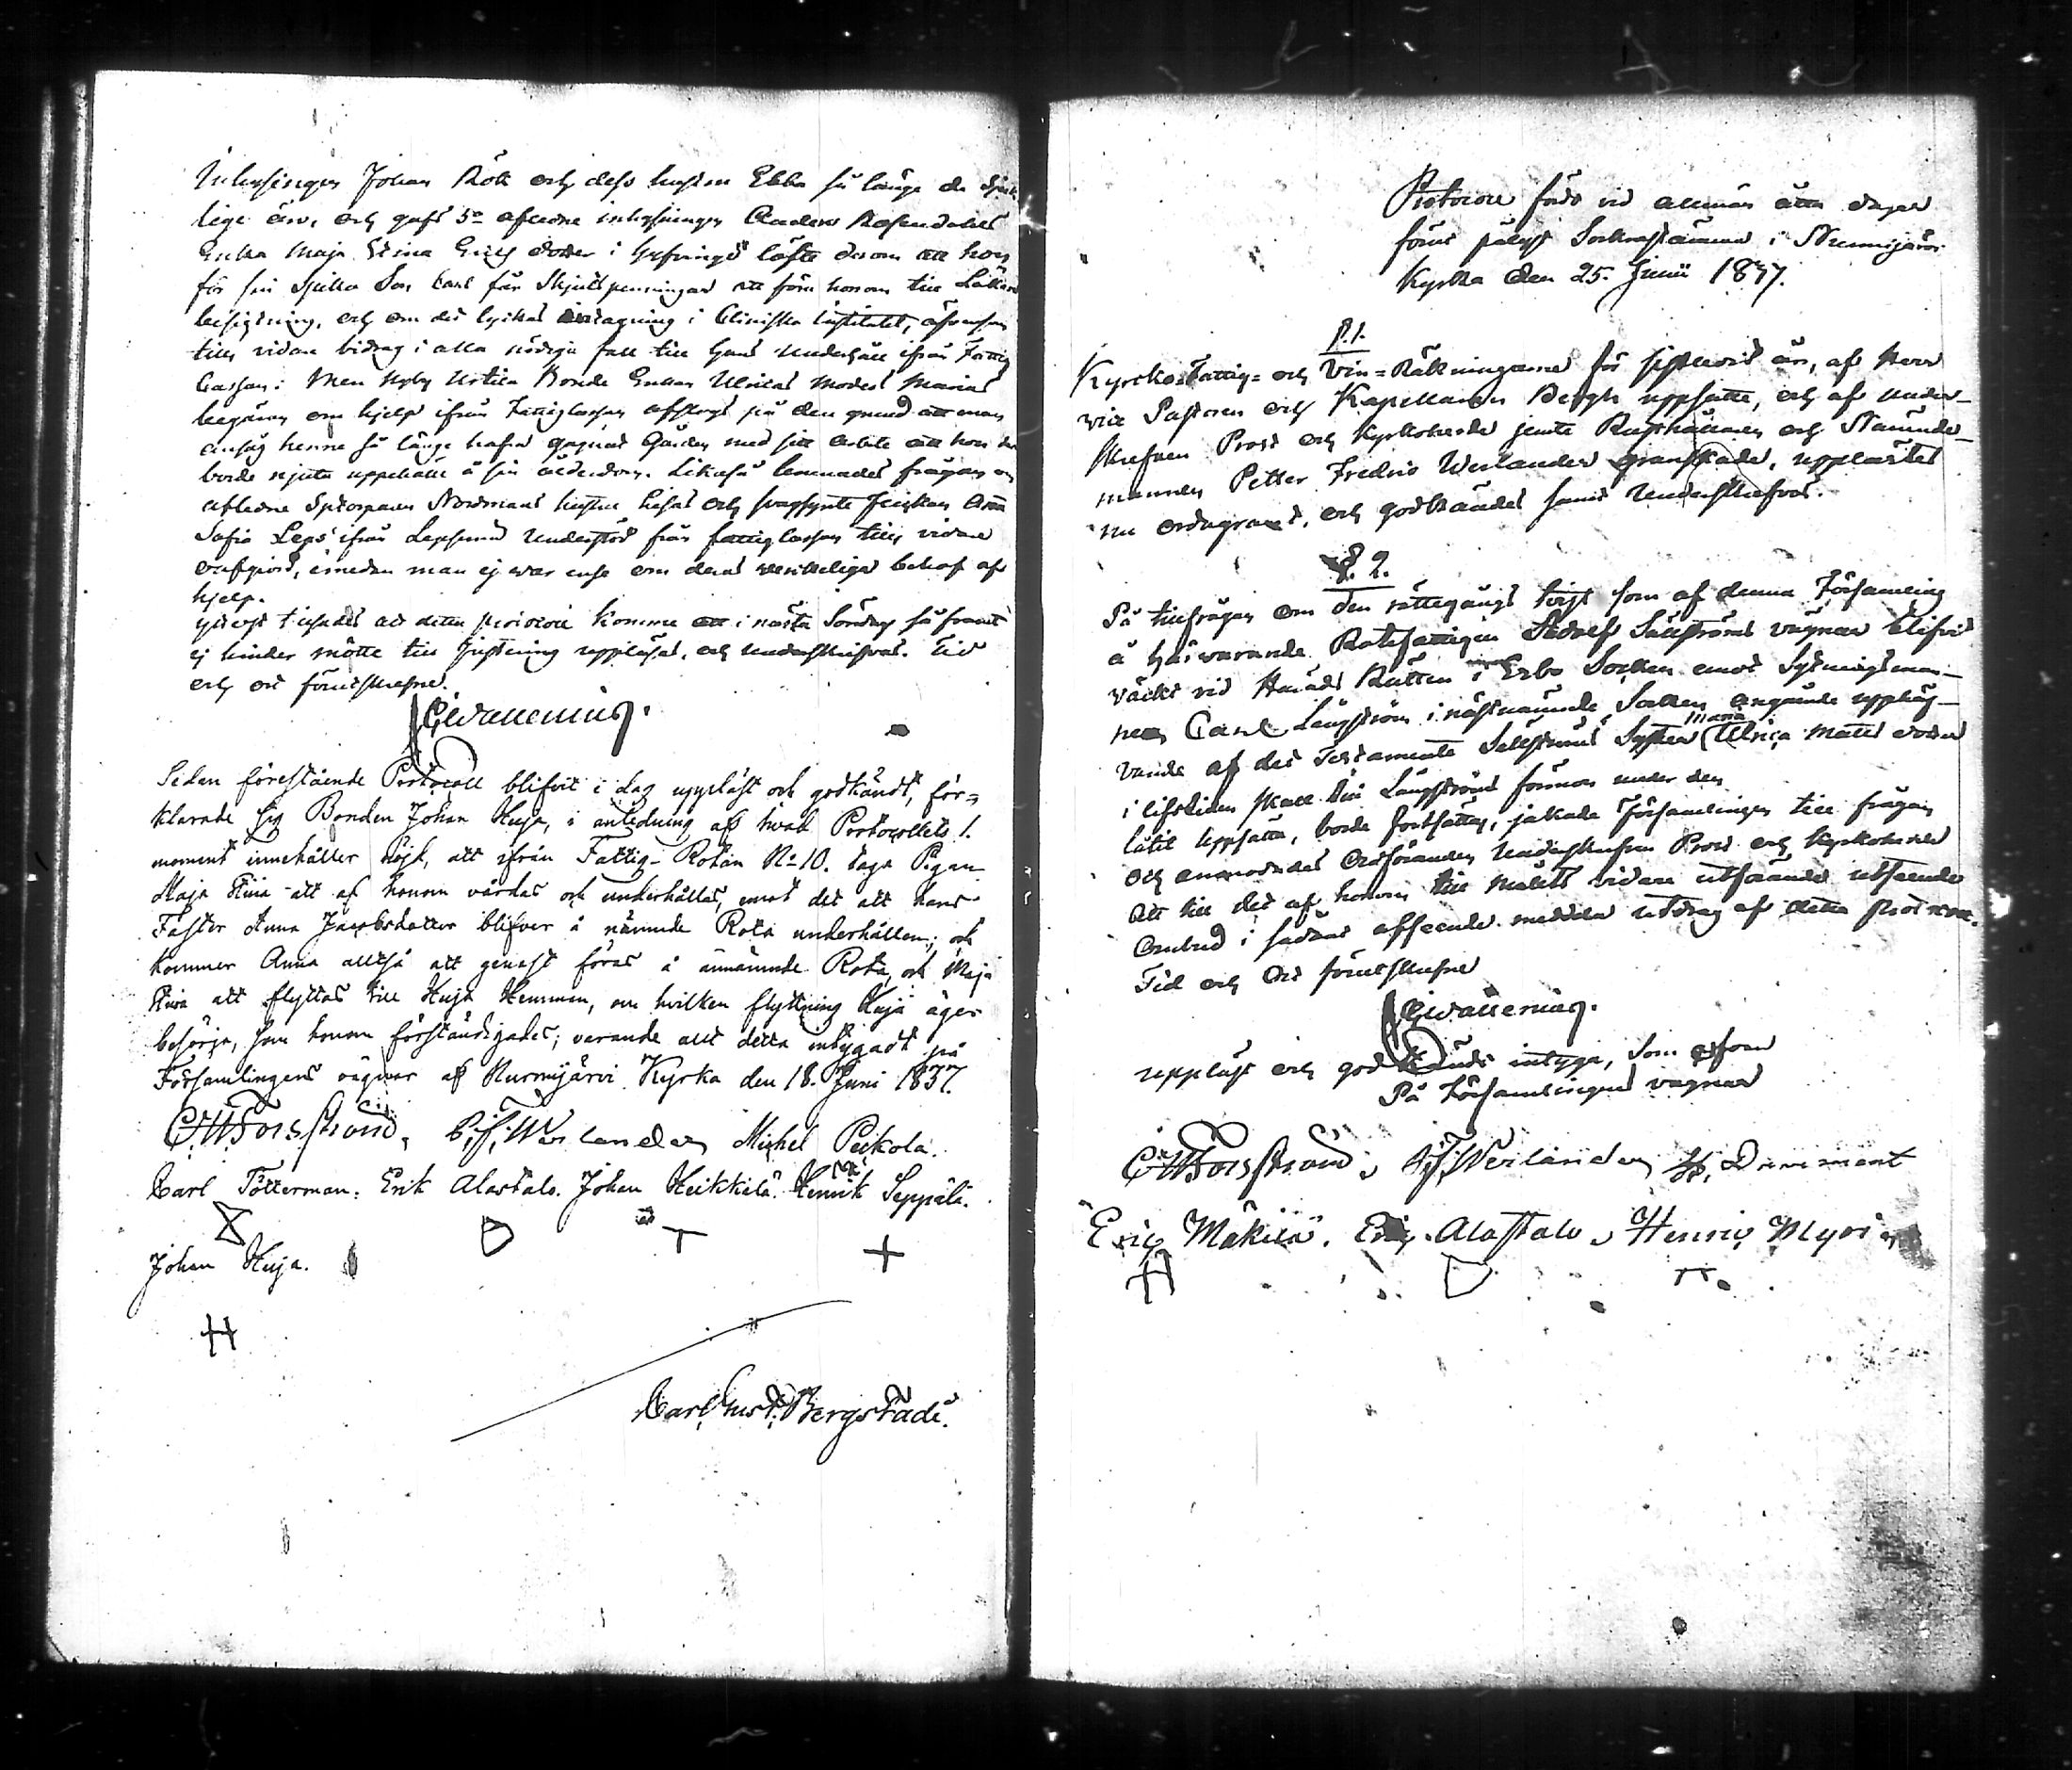 Inhysingen Johan Rök och dess hustru Ebba så länge de sjuk-
lige äro, och gafs 5o afledne inhysningen Anders Rosendahls
Enka Maja Stina Erics dotter i löfte derom att hon
för sin sjuka Son Carl får Skjutspenningar att föra honom till Läkare
besigtning, och om det lyckas intagning i Cliniska institutet, äfvensom
tills vidare bidrag i alla nödiga fall till hans Underhåll ifrån Fattig
Cassan: Men Nyby Urtila Bonde Enkan Ulricas Moders Marias
begäran om hjelp ifrån Fattigcassan afslogs på den grund att man
ansåg henne så länge hafva gagnat Gården med sitt arbete att hon der
borde njuta uppehälle å sin ålderdom. Likaså lemnades frågan om
afledne Nordmans hustru Lisas och svagsynte Anna
Sofia Leps ifrån Lepsund Understöd från fattigcassan tills vidare
oafgjord, emedan man ej war ense om deras werkeliga behof af
hjelp.
Ytterst att detta protocoll komme att i nästa Söndag så framt
ej hinder mötte till Justering uppläsas, och underskrifvas. Tid
och ort förutskrefne.
Sedan förestående Protocoll blifvit i dag uppläst och godkändt, för-
klarade sig Bonden Johan Kuja, i anledning af hvad Protocollets 1.
moment innehåller nöjd, att ifrån Fattig-Rotan No 10. taga Pigan
Maja Stina att af honom vårdas och underhållas, emot det att hans
Faster Anna Jacobsdotter blifver å nämnde Rota underhållen; och
kommer Anna alltså att genast föras å nämnde Rota, och Maja
Stina att flyttas till Kuja Hemman, om hvilken flyttning Kuja äger
besörja, som honom förständigades; varande allt detta intygadt på
Församlingens vägnar af Nurmijärvi Kyrka den 18. Juni 1837.
C:W:Forsström, P:F:Werlander Michel Peikola.
Carl Tötterman. Erik Alastalo. Johan Heikkilä. Henrik Seppälä.
Johan Kuja.
Carl Gust: Bergstadi.
Protocoll fördt vid allmän åtta dagar
förut pålyst Sockenstämma i Nurmijärvi
Kyrka den 25. Junii 1837.
§.1.
Kyrko- Fattig- och Vin-Räkningarna för sistledit år, af Herr
vice Pastorn och Kapellanen Bergh uppsatte, och af under-
skrefven Prost och Kyrkoherde jemte Rusthållaren och Nämnde-
mannen Petter Fredric Werlander granskade, upplästes
nu ordagrant, och godkändes samt Underskrefvos.
§. 2.
På tillfrågan om den rättegångs tvist som af denna Församling
å härvarande Rotefattigen Sällströms vägnar blifvit
väckt vid Härads Rätten i Esbo Socken emot Sytningsman-
nen Carl Långström i nästnämnde Socken angående uppläg-
vande af det Testamente Sällströms Syster Maria Ulrica Mattsdotter
i lifstiden skall till Långströms förmon under den
låtit uppsätta, borde fortsättas, jakade Församlingen till frågan
och anmodades Ordföranden Underskrefven Prost och Kyrkoherde
att till det af honom till målets vidare utförande utseende
Ombud i sådant afseende meddela utdrag af detta protocoll.
Tid och Ort förutskrefne
Uppläst och godkändt intyga, som ofvan
På Församlingens vägnar
C:W:Forsström, P:F:Werlander,
Eric Mäkilä. Eric Alastalo, Henric